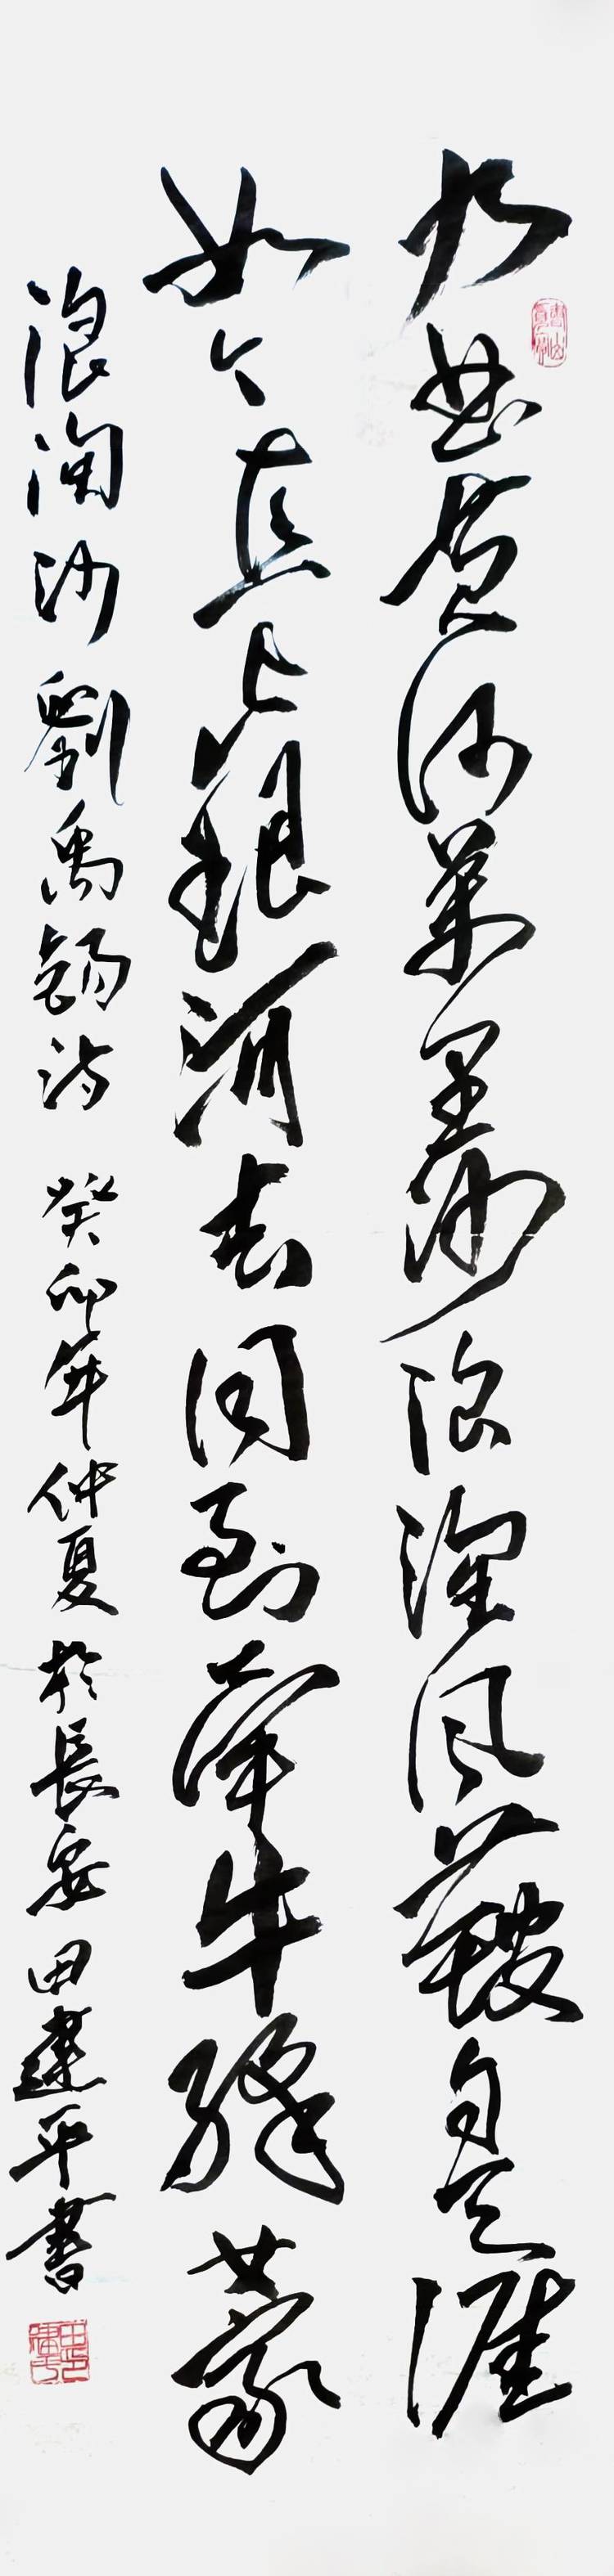 九曲黄河萬里沙浪淘风簸自天涯
如今直上銀河去同到牵牛織女家
浪淘沙 劉禹錫诗 癸卯年仲夏於長安田建平書